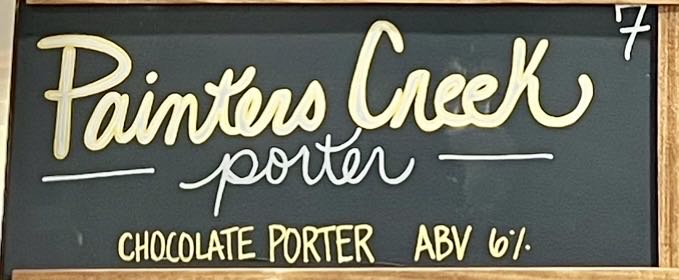 7
Painters Creek
porter
CHOCOLATE PORTER ABV 6%